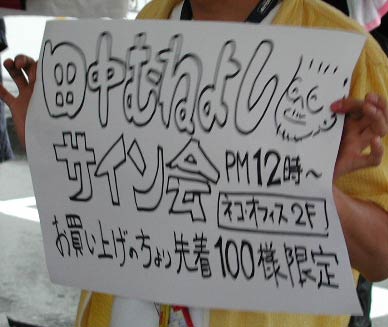 田中むねよし
サイン会 PM12時～
ネコ・オフィス2F
お買い上げの方より先着100様限定